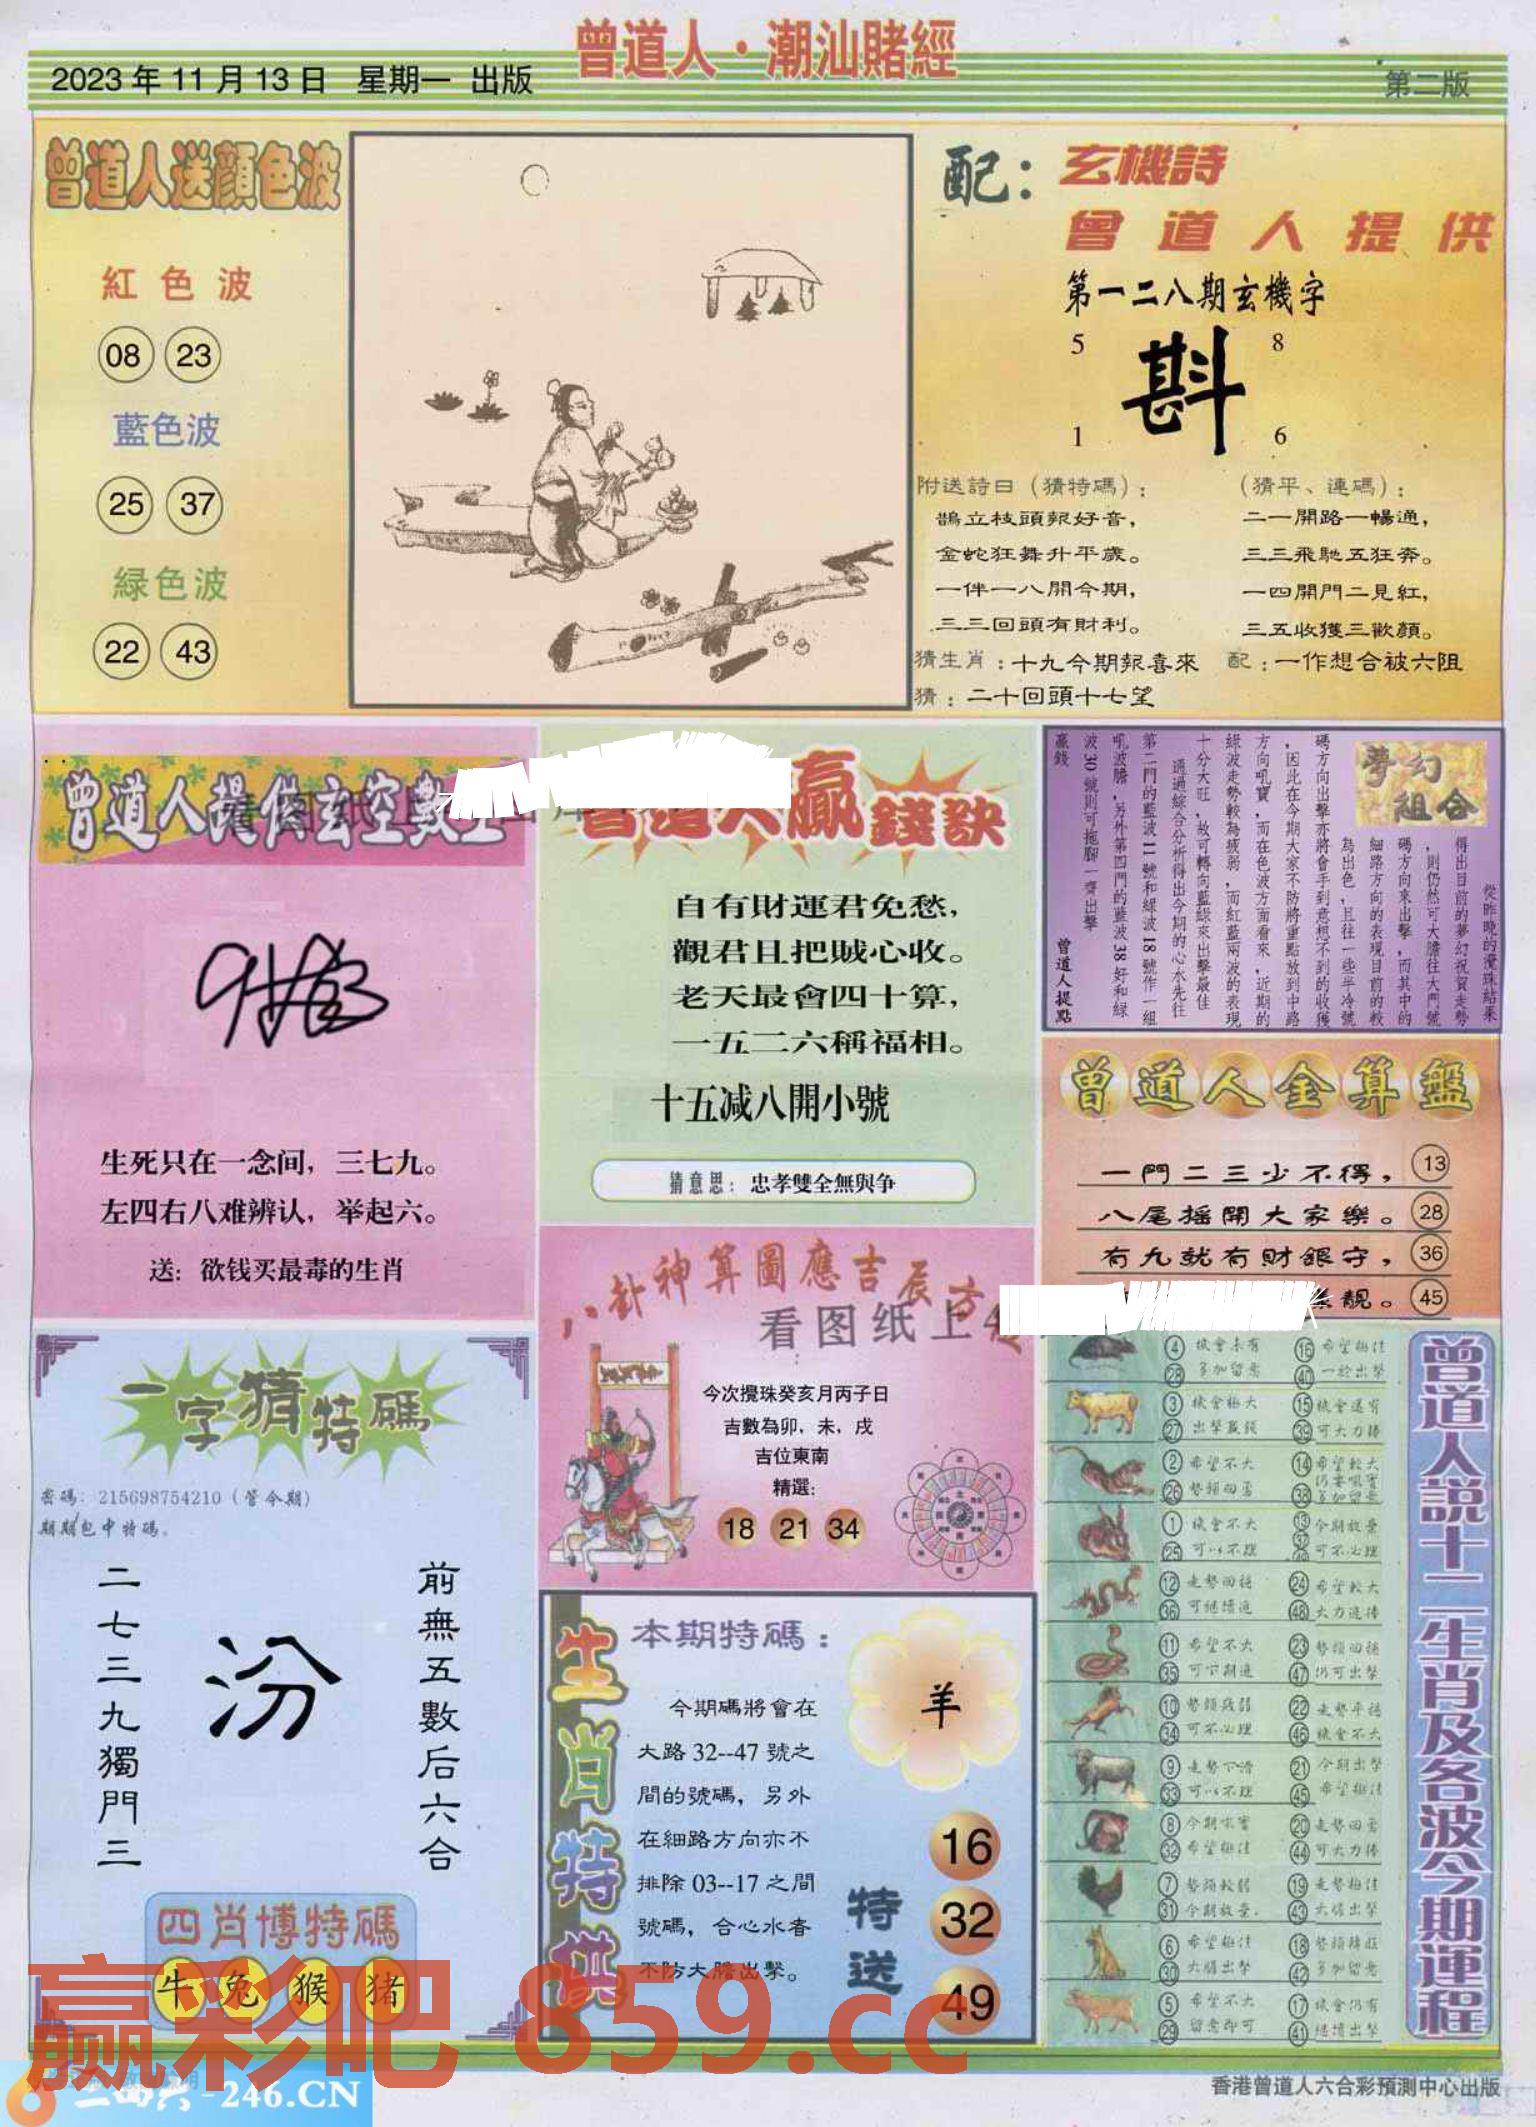 曾道人·潮汕賭經
2023年11月13日 星期一 出版
第二版
曾道人送顔色波
紅色波
08 23
藍色波
25 37
緑色波
22 43
配：玄機詩
曾道人提供
第一二八期玄機字
5 8
斟
1 6
附送詩曰（猜特碼）：
鵲立枝頭報好音，
金蛇狂舞升平歲。
一伴一八開今期，
三三回頭有財利。
猜生肖：十九今期報喜來
猜：二十回頭十七望
（猜平、連碼）：
二一開路一暢通，
三三飛馳五狂奔。
一四開門二見紅，
三五收獲三歡顔。
配：一作想合被六阻
曾道人提供玄空數
生死只在一念间，三七九。
左四右八难辨认，举起六。
送：欲钱买最毒的生肖
贏錢訣
自有財運君免愁，
觀君且把賊心收。
老天最會四十算，
一五二六稱福相。
十五减八開小號
猜意思：忠孝雙全無與争
夢幻組合
從昨晚的攪珠結果
得出目前的夢幻祝賀走勢
，則仍然可大膽往大門號
碼方向來出擊，而其中的
細路方向的表現目前的較
為出色，且往一些半冷號
碼方向出擊亦將會手到意想不到的收獲
，因此在今期大家不防將重點放到中路
方向吼寶，而在色波方面看來，近期的
綠波走勢較為疲弱，而紅藍兩波的表現
十分大旺，故可轉向藍綠來出擊最佳
通過綜合分析得出今期的心水先往
第二門的藍波11號和緑波18號作一組
吼波膽，另外第四門的藍波38好和緑
波30號則可拖腳一齊出擊
贏錢
曾道人提點
曾道人金算盤
一門二三少不得， 13
八尾摇開大家樂。 28
有九就有財銀守， 36
靚。 45
八卦神算圖應吉辰方
看图纸上
今次攪珠癸亥月丙子日
吉數為卯，未，戌
吉位東南
精選：
18 21 34
一字猜特碼
密碼：215698754210（管今期）
期期包中特碼。
前無五數后六合
汾
二七三九獨門三
四肖博特碼
牛 兔 猴 猪
生肖特供
本期特碼：
今期碼將會在
大路32--47號之
間的號碼，另外
在細路方向亦不
排除03--17之間
號碼，合心水者
不防大膽出擊。
羊
特送
16
32
49
曾道人説十二生肖及各波今期運程
4 機會未有 16 希望極佳
28 多加留意 40 一於出擊
3 機會極大 15 機會還有
27 出擊贏錢 39 可大力捧
2 希望不大 14 希望較大
26 勢頭回勇 38
1 機會不大 13 今期放量
25 可以不理 37 49 可不必理
12 走勢回穩 24 希望較大
36 可繼續追 48 大力追捧
11 希望不大 23 勢頭回穩
35 可下期追 47 仍可出擊
10 勢頭疲弱 22 走勢平穩
34 可不必理 46 機會不大
9 走勢下滑 21 今期出擊
33 可以不理 45 希望極佳
8 今期吼實 20 走勢回勇
32 希望極佳 44 可大力捧
7 勢頭較弱 19 走勢極佳
31 今期放棄. 43 大膽出擊
6 希望極佳 18 勢頭轉旺
30 大膽出擊 42 多加留意
5 希望不大 17 機會仍有
29 留意即可 41 繼續出擊
赢彩吧 859.cc
二四六-246.CN
香港曾道人六合彩預測中心出版